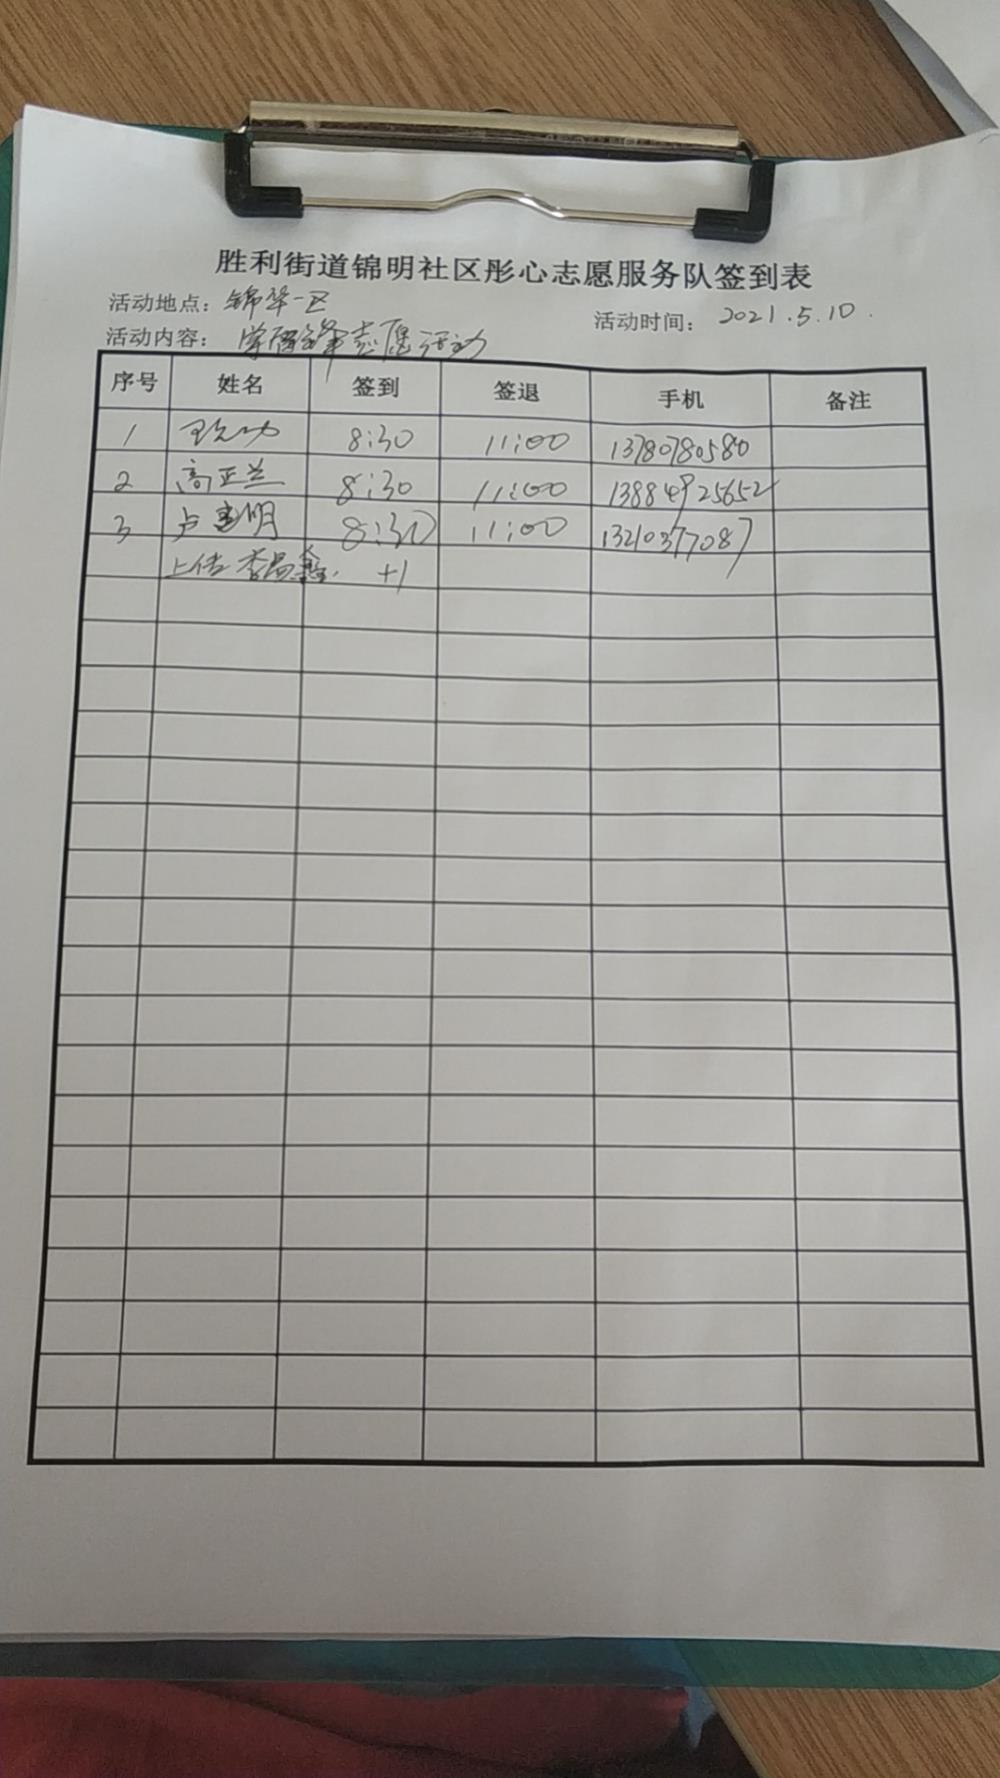 胜利街道锦明社区彤心志愿服务队签到表
活动地点：锦华一区 活动时间：2021.5.10.
活动内容：学雷锋志愿活动
序号 姓名 签到 签退 手机 备注
1 8:30 11:00 13780780580
2 高正兰 8:30 11:00 13884925652
3 卢 明 8:30 11:00 13210377087
上传李昌鑫. +1